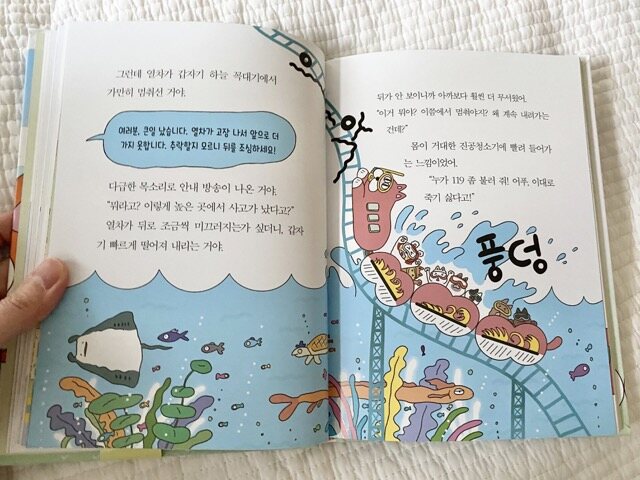 그런데 열차가 갑자기 하늘 꼭대기에서
가만히 멈춰선 거야.
여러분, 큰일 났습니다. 열차가 고장 나서 앞으로 더
가지 못합니다. 추락할지 모르니 뒤를 조심하세요!
다급한 목소리로 안내 방송이 나온 거야.
"뭐라고? 이렇게 높은 곳에서 사고가 났다고?"
열차가 뒤로 조금씩 미끄러지는가 싶더니, 갑자
기 빠르게 떨어져 내리는 거야.
뒤가 안 보이니까 아까보다 훨씬 더 무서웠어.
"이거 뭐야? 이쯤에서 멈춰야지? 왜 계속 내려가는
건데?"
몸이 거대한 진공청소기에 빨려 들어가
는 느낌이었어.
"누가 119 좀 불러 줘! 어푸, 이대로
죽기 싫다고!"
풍덩